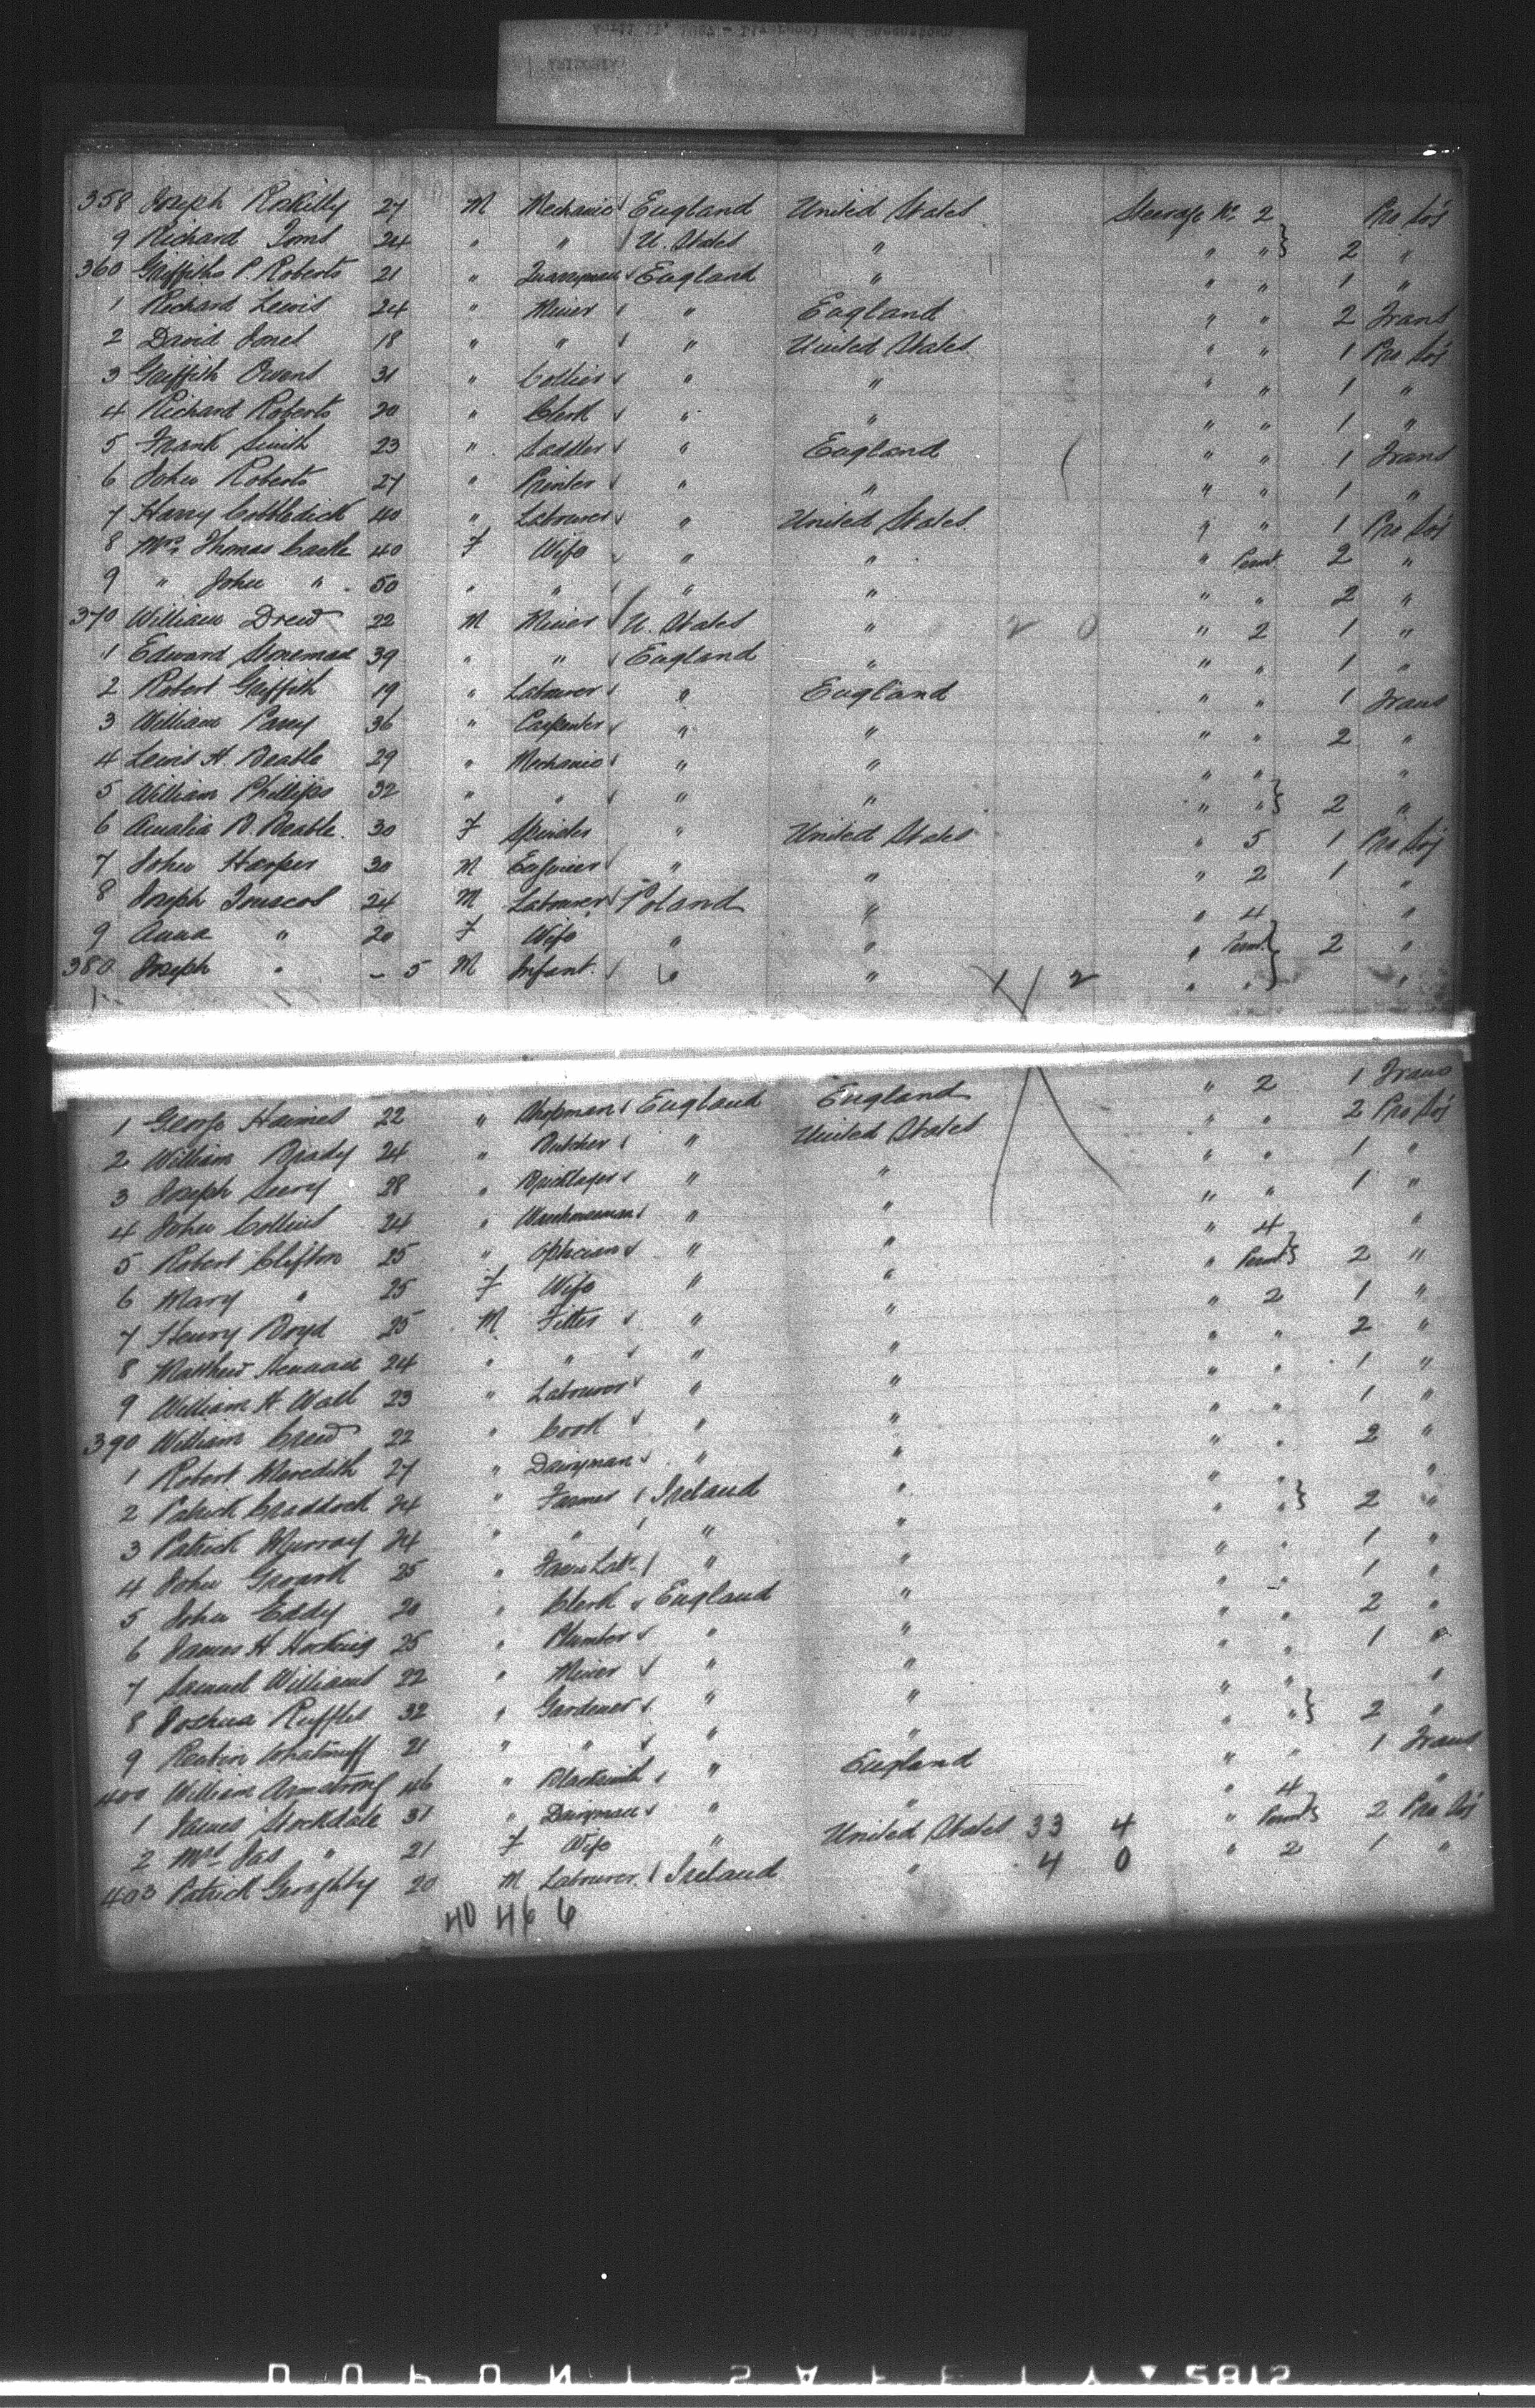 358 Joseph Roskilly 27 M Mechanic England United States Steerage No 2 Pro Soj
9 Richard Toms 24 " " U. States " " " } 2 "
360 Griffiths P. Roberts 21 " Quarryman England " " " 1 "
1 Richard Lewis 24 " Miner " England " " 2 Trans
2 David Jones 18 " " " United States " " 1 Pro Soj
3 Griffith Owens 31 " Collier " " " " 1 "
4 Richard Roberts 20 " Clerk " " " " 1 "
5 Frank Smith 23 " Saddler " England " " 1 Trans
6 John Roberts 27 " Printer " " " " 1 "
7 Harry Cobbledick 40 " Labourer " United States " " 1 Pro Soj
8 Mrs Thomas Castle 40 F Wife " " " Permt 2 "
9 " John " 50 " " " " " " 2 "
370 William Drew 22 M Miner U. States " 2 0 " 2 1 "
1 Edward Stoneman 39 " " England " " " 1 "
2 Robert Griffith 19 " Labourer " England " " 1 Trans
3 William Parry 36 " Carpenter " " " " 2 "
4 Lewis H. Beable 29 " Mechanic " " " " "
5 William Phillips 32 " " " " " " } 2 "
6 Amalia B. Beable 30 F Spinster " United States " 5 1 Pro Soj
7 John Harper 30 M Engineer " " " 2 1 "
8 Joseph 24 M Labourer Poland " " 4 "
9 Anna " 20 F Wife " " " Permt } 2 "
380 Joseph " - 5 M Infant " 2 " " "
1 George Haimes 22 " Shopman England England " 2 1 Trans
2 William Brady 24 " Butcher " United States " " 2 Pro Soj
3 Joseph 28 " Bricklayer " " " " 1 "
4 John Collins 24 " Warehouseman " " " " 1 "
5 Robert Clifton 25 " Optician " " " 4 "
6 Mary " 25 F Wife " " " Permt } 2 "
7 Henry Boyd 25 M Fitter " " " 2 1 "
8 Matthew 24 " " " " " " 2 "
9 William H. Wall 23 " Labourer " " " " 1 "
390 William Crew 22 " Cook " " " " 1 "
1 Robert Meredith 27 " Dairyman " " " " 2 "
2 Patrick Craddock 24 " Farmer Ireland " " " "
3 Patrick Murray 24 " " " " " " } 2 "
4 John 25 " Farm Labr " " " " 1 "
5 John Eddy 20 " Clerk England " " " 1 "
6 James H Hocking 25 " Plumber " " " " 2 "
7 Samuel Williams 22 " Miner " " " " 1 "
8 Joshua Ruffles 32 " Gardener " " " " "
9 21 " " " " " " } 2 "
400 William Armstrong 46 " Blacksmith " England " " 1 Trans
1 James Stockdale 31 " Dairyman " " " 4 "
2 Mrs Jas " 21 F Wife " United States 33 4 " Permt } 2 Pro Soj
403 Patrick Geraghty 20 M Labourer Ireland " 4 0 " 2 1 "
40 46 6
DUPONT SAFETY 5812